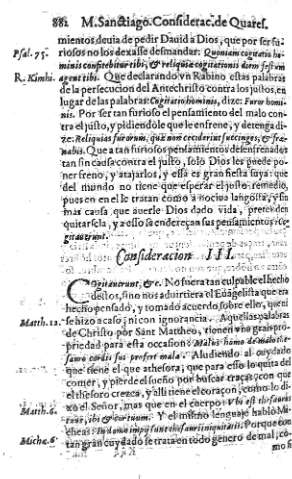 882 M. Sanctiago. Considerac. de Quares.
mientos deuia de pedir Dauid a Dios, que por ser fu-
Psal. 75. riosos no los dexasse desmandar: Quoniam cogitatio ho-
minis confitebitur tibi, & reliquiæ cogitationis diem festum
R. Kimhi. agent tibi. Que declarando vn Rabino estas palabras
de la persecucion del Antechristo contra los justos, en
lugar de las palabras: Cogitatio hominis, dize: Furor homi-
nis. Por ser tan furioso el pensamiento del malo con-
tra el justo, y pidiendole que le enfrene, y detenga di-
ze: Reliquias furorum, quæ non ceciderint subinges, & fræ-
nabis. Que a tan furiosos pensamientos desenfrenados
tan sin causa contra el justo, solo Dios les puede po-
ner freno, y atajarlos, y essa es gran fiesta suya: que
del mundo no tiene que esperar el justo remedio,
pues en el le tratan como a nociua langosta, y sin
mas causa, que auerle Dios dado vida, pretenden
quitarsela, y a esso se endereçan sus pensamientos: Co-
gitauerunt.
Consideracion III.
COgitauerunt, &c. No fuera tan culpable el hecho
destos, sino nos aduirtiera el Euãgelista que era
hecho pensado, y tomado acuerdo sobre ello, que ni
Matth. 12. se hizo acaso, ni con ignorancia. Aquellas palabras
de Christo por Sant Mattheo, tienen vna gran pro-
priedad para esta occasion: Malus homo de malo the-
sauro cordis sui profert mala. Aludiendo al cuydado
que tiene el que athesora, que para esso lo quita del
comer, y pierde el sueño por buscar traças, con que
el thesoro crezca, y alli tiene el coraçon, como lo di-
Matth. 6. xo el Señor, mas que en el cuerpo: Vbi est thesaurus
tuus, ibi & cor tuum. Y el mismo lenguaje hablò Mi-
Miche. 6. cheas: In domo impij sunt thesauri iniquitatis. Porque con
tan gran cuydado se trata en todo genero de mal, co-
mo si